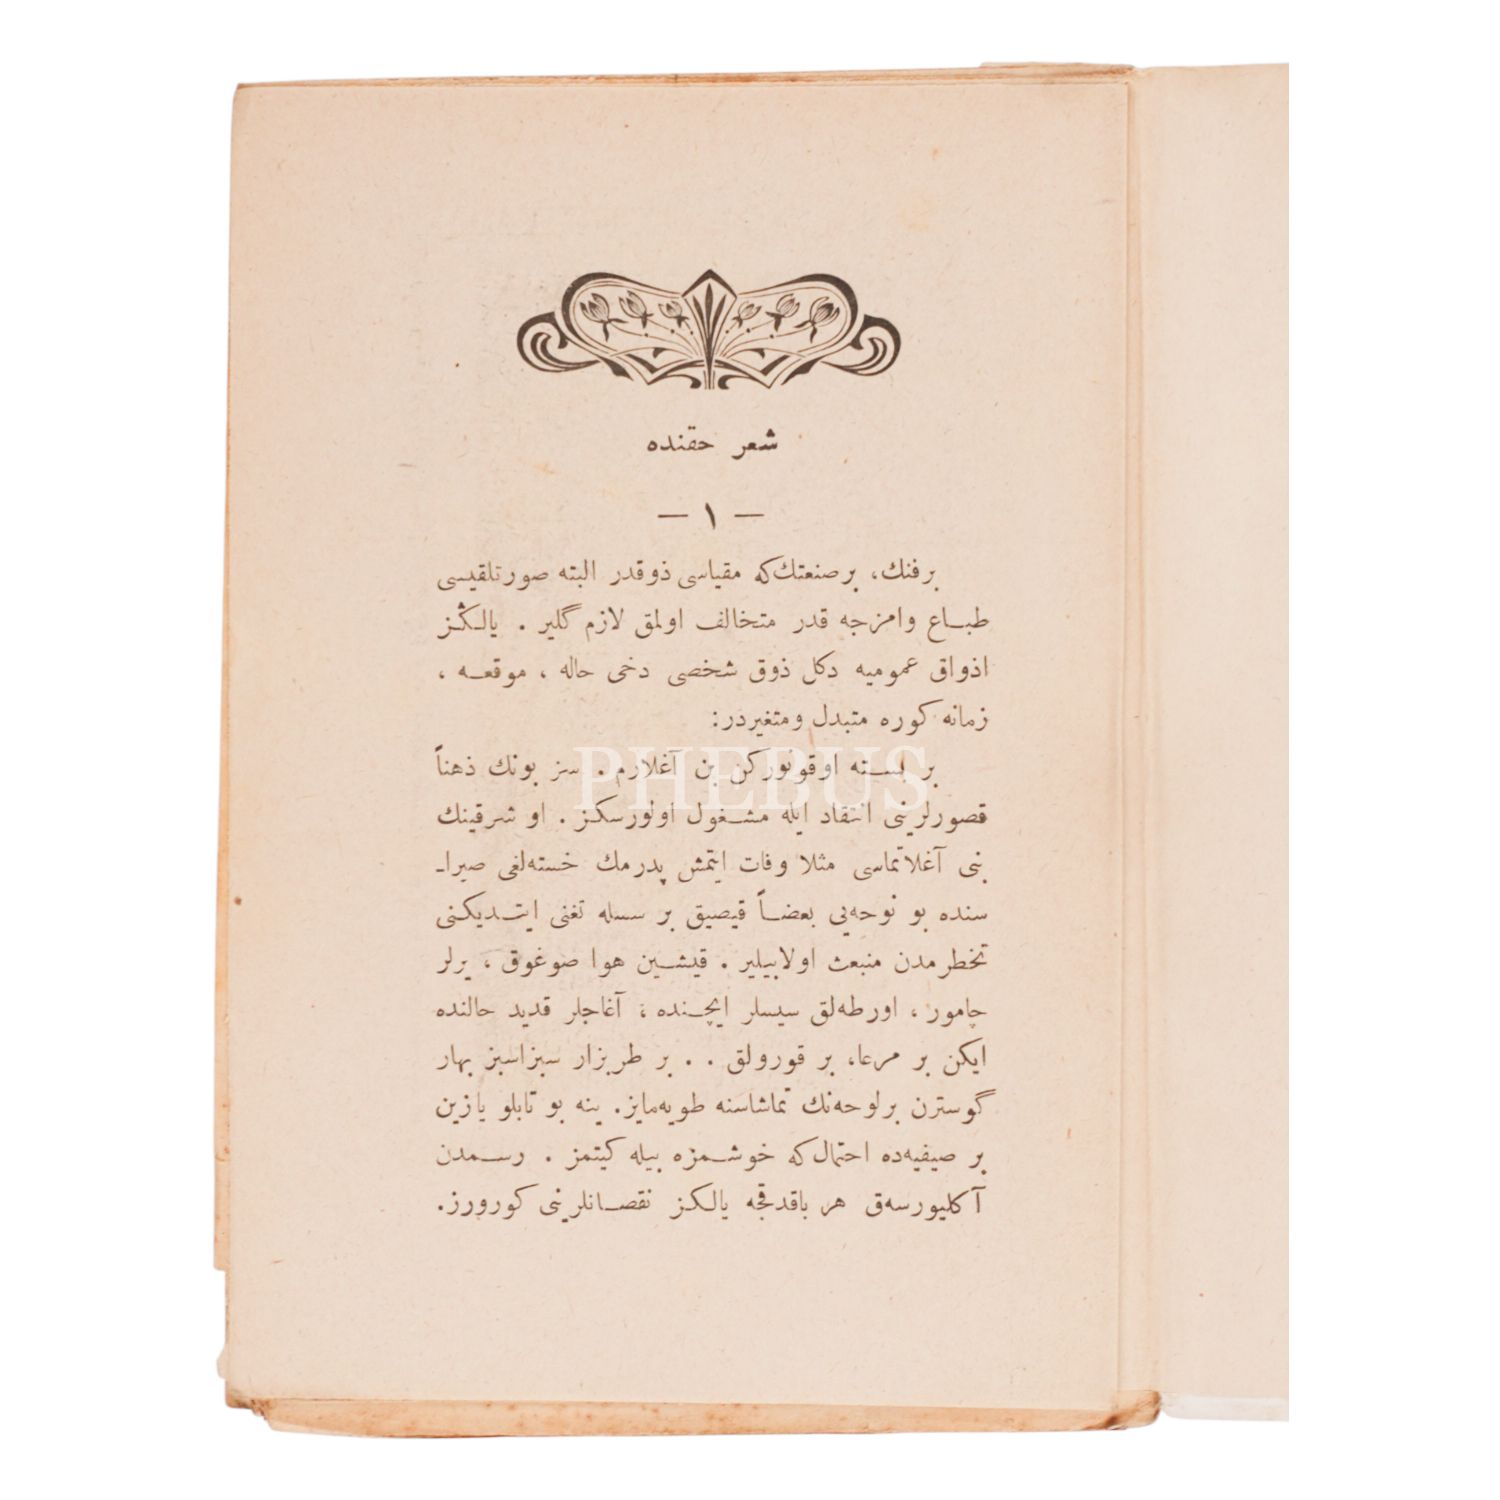 شعر حقنده
— ١ —
بر فنك، بر صنعتك كه مقياسى ذوقدر البته صور تلقيسى
طباع وامزجه قدر متخالف اولمق لازم گلير . يالڭز
اذواق عموميه دكل ذوق شخصى دخى حاله ، موقعه ،
زمانه كوره متبدل ومتغيردر:
PHEBUS
بر بسته اوقونوركن بن آغلارم . سز بونك ذهناً
قصورلرينى انتقاد ايله مشغول اولورسكز . او شرقينك
بنى آغلاتماسى مثلا وفات ايتمش پدرمك خسته‌لغى صيرا-
سنده بو نوحه‌يى بعضاً قيصيق بر سسله تغنى ايتديكنى
تخطرمدن منبعث اولابيلير . قيشين هوا صوغوق ، يرلر
چامور ، اورطه‌لق سيسلر ايچنده ، آغاجلر قديد حالنده
ايكن بر مرعا، بر قورولق . . بر طربزار سبزاسبز بهار
گوسترن بر لوحه‌نك تماشاسنه طويه‌مايز. ينه بو تابلو يازين
بر صيفيه‌ده احتمال كه خوشمزه بيله كيتمز . رسمدن
آكليورسه‌ق هر باقدقجه يالكز نقصانلرينى كورورز.